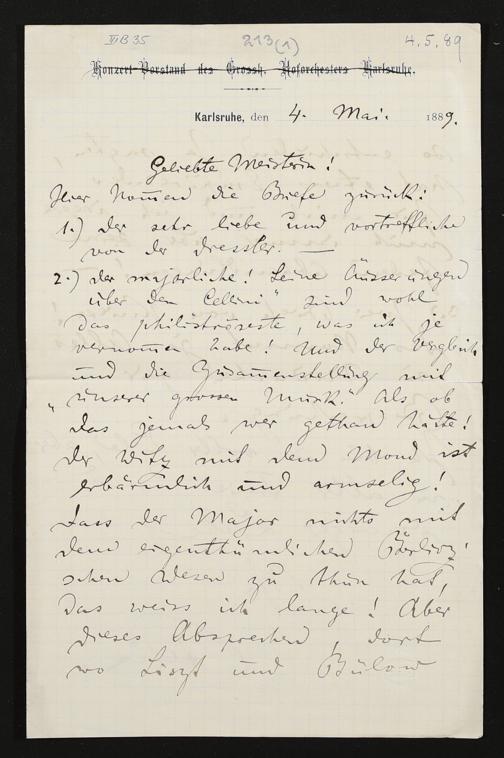 VI B 35 213 (1) 4.5.89
Konzert-Vorstand des Grossh. Hoforchesters Karlsruhe.
Karlsruhe, den 4. Mai. 1889.
Geliebte Meisterin!
Hier kommen die Briefe zurück:
1.) der sehr liebe und vortreffliche
von der Dressler. —
2.) der majorliche! Seine Äusserungen
über den „Cellini" sind wohl
das philiströseste, was ich je
vernommen habe! Und der Vergleich
und die Zusammenstellung mit
„unserer grossen Musik." Als ob
das jemals wer gethan hätte!
Der Witz mit dem Mond ist
erbärmlich und armselig!
Dass der Major nichts mit
dem eigenthümlichen Berlioz'
schen Wesen zu thun hat,
das weiss ich lange! Aber
dieses Absprechen, dort
wo Liszt und Bülow